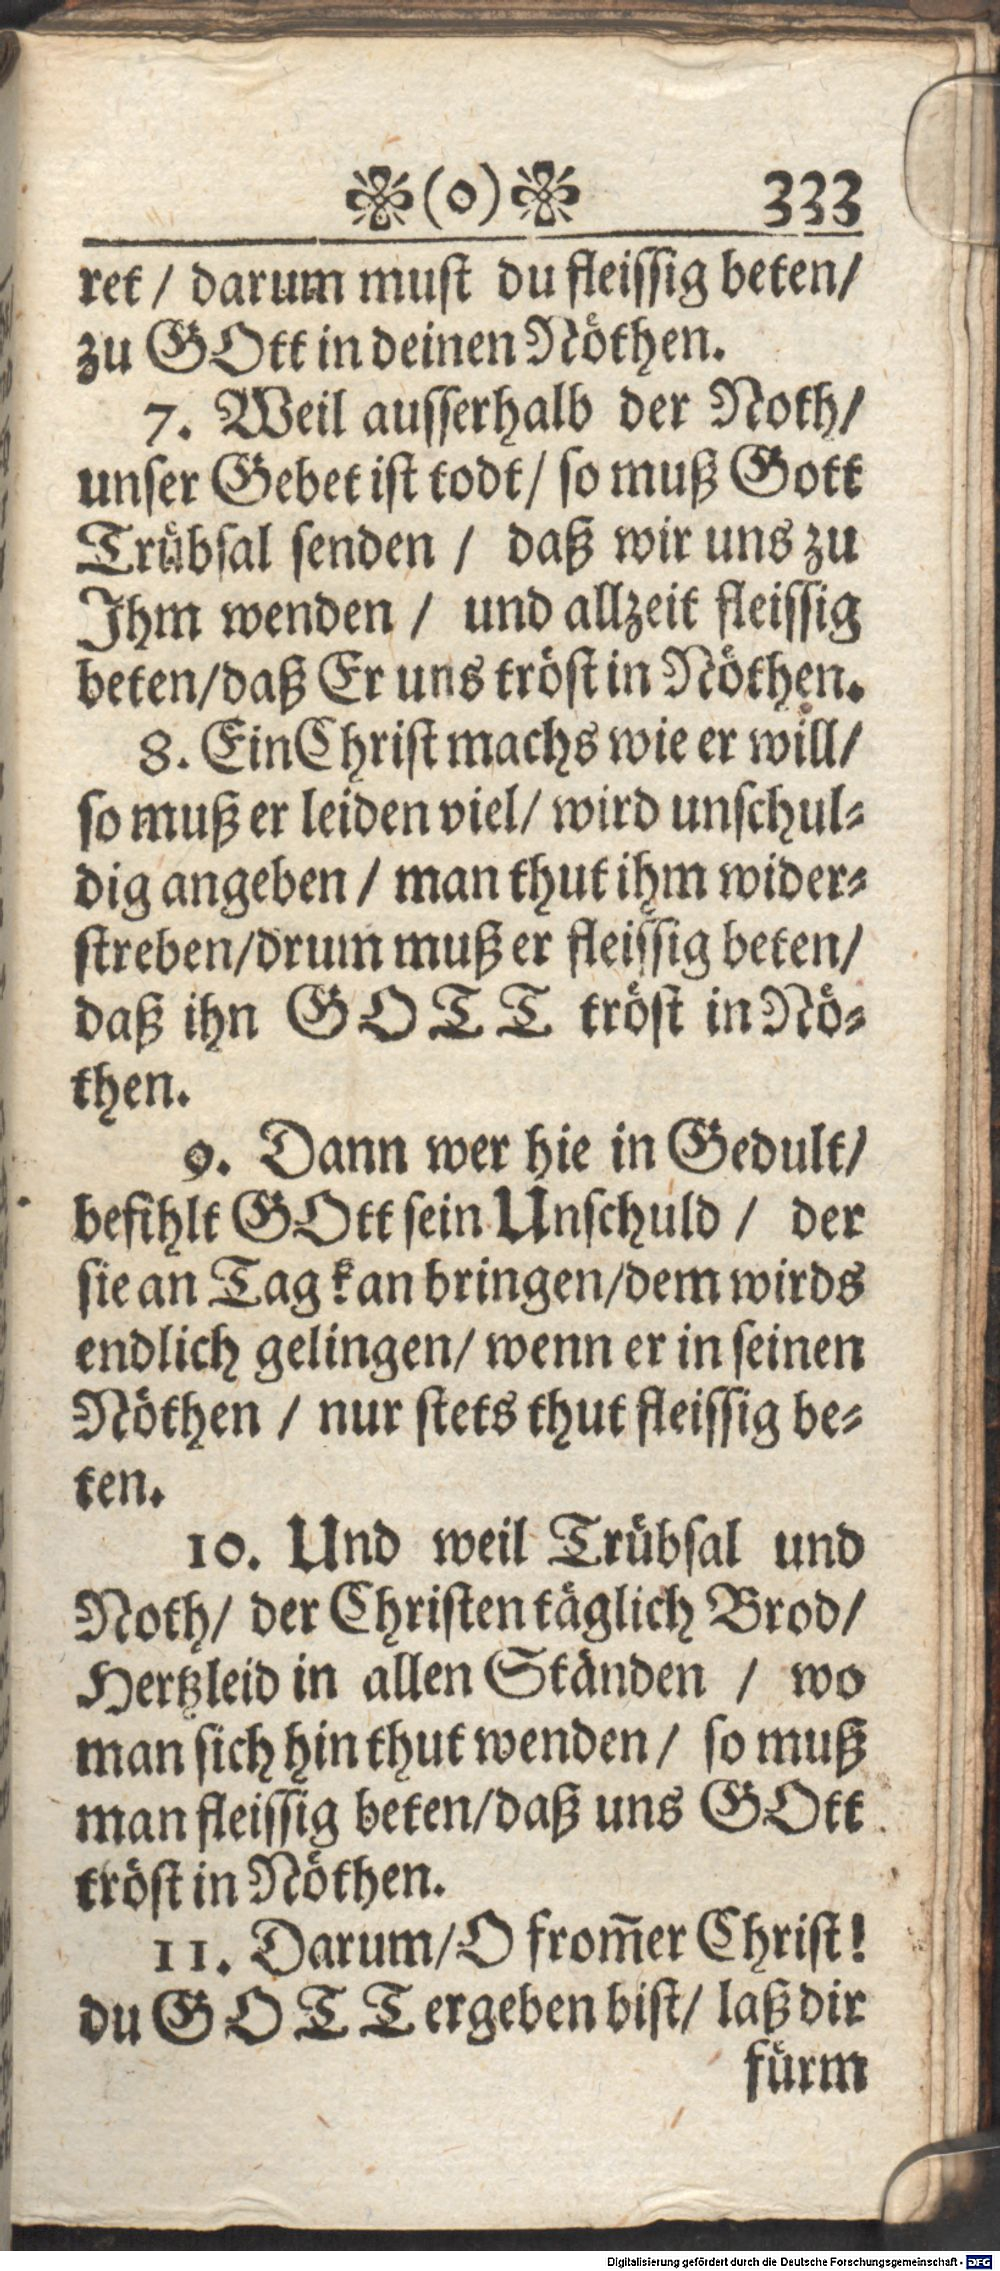 ❀(o)❀ 333
ret / darum must du fleissig beten/
zu GOtt in deinen Nöthen.
7. Weil ausserhalb der Noth/
unser Gebet ist todt/ so muß Gott
Trübsal senden / daß wir uns zu
Ihm wenden / und allzeit fleissig
beten/daß Er uns tröst in Nöthen.
8. Ein Christ machs wie er will/
so muß er leiden viel/ wird unschul-
dig angeben / man thut ihm wider-
streben/drum muß er fleissig beten/
daß ihn GOTT tröst in Nö-
then.
9. Dann wer hie in Gedult/
befihlt GOtt sein Unschuld / der
sie an Tag kan bringen/dem wirds
endlich gelingen/ wenn er in seinen
Nöthen / nur stets thut fleissig be-
ten.
10. Und weil Trübsal und
Noth/ der Christen täglich Brod/
Hertzleid in allen Ständen / wo
man sich hin thut wenden / so muß
man fleissig beten/daß uns GOtt
tröst in Nöthen.
11. Darum/O from̃er Christ!
du GOTT ergeben bist/ laß dir
fürm
Digitalisierung gefördert durch die Deutsche Forschungsgemeinschaft - DFG